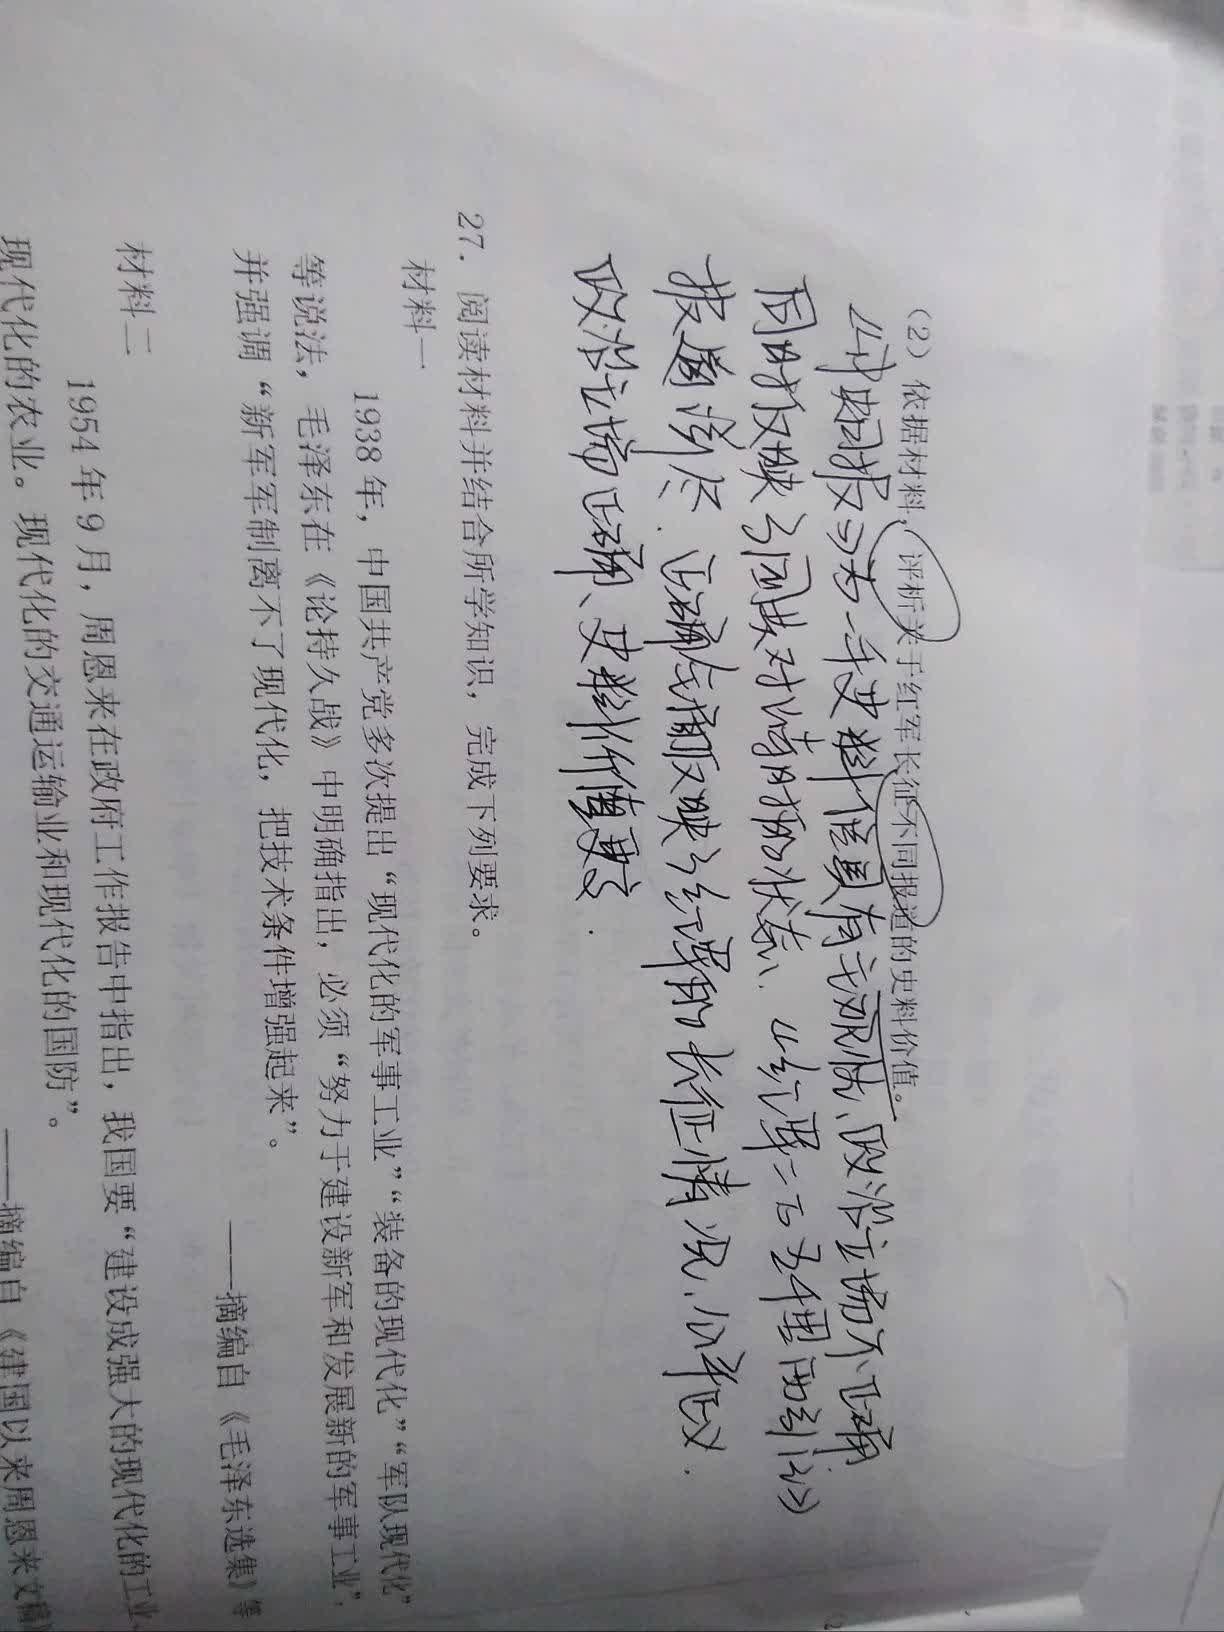 (2) 依据材料，评析关于红军长征不同报道的史料价值。
《申报》为一手史料但具有主观性、政治立场不正确
同时反映了国共对峙时期的状态、《红军二万五千里西引记》
报道详尽、正确全面反映了红军的长征情况、公平正义.
政治立场正确、史料价值更高.
27. 阅读材料并结合所学知识，完成下列要求。
材料一
1938年，中国共产党多次提出“现代化的军事工业”“装备的现代化”“军队现代化”
等说法，毛泽东在《论持久战》中明确指出，必须“努力于建设新军和发展新的军事工业”，
并强调“新军军制离不了现代化，把技术条件增强起来”。
——摘编自《毛泽东选集》等
材料二
1954年9月，周恩来在政府工作报告中指出，我国要“建设成强大的现代化的工业、
现代化的农业。现代化的交通运输业和现代化的国防”。
——摘编自《建国以来周恩来文稿》